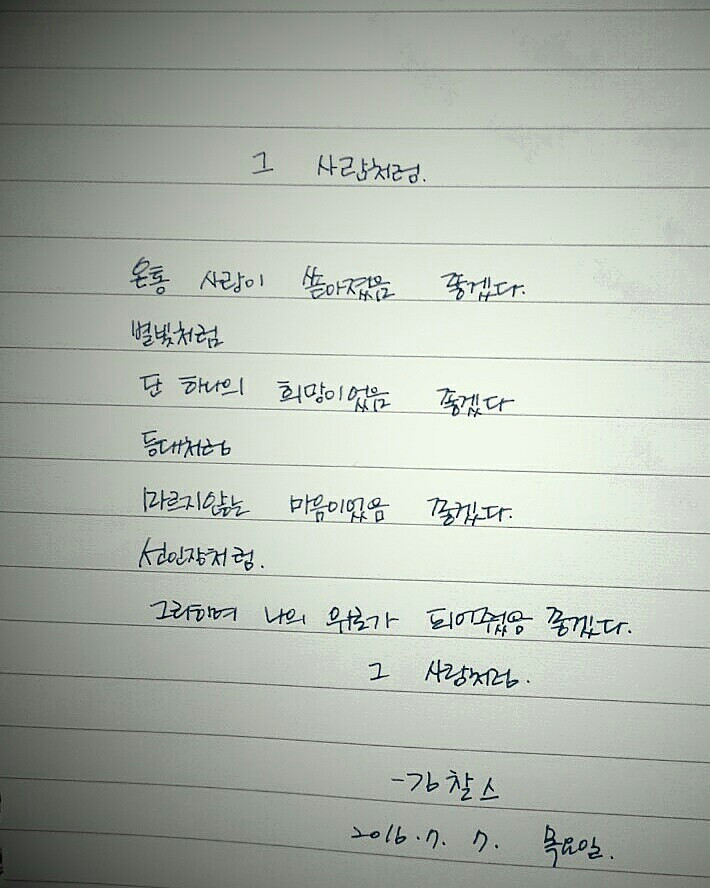 그 사람처럼.
온통 사랑이 쏟아졌음 좋겠다.
별빛처럼
단 하나의 희망이었음 좋겠다
등대처럼
마르지않는 마음이었음 좋겠다.
선인장처럼.
그리하여 나의 위로가 되어줬음 좋겠다.
그 사람처럼.
-김찰스
2016.7.7. 목요일.